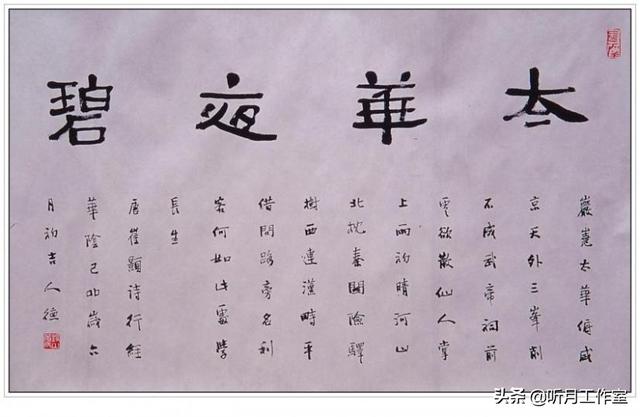 太華夜碧
巖嶤太華俯咸
京天外三峯削
不成武帝祠前
雲欲散仙人掌
上雨初晴河山
北枕秦關險驛
樹西連漢時平
借問路旁名利
客何如此處學
長生
唐崔顥詩行經
華陰己卯歲六
月初吉人德
头条 @听月工作室